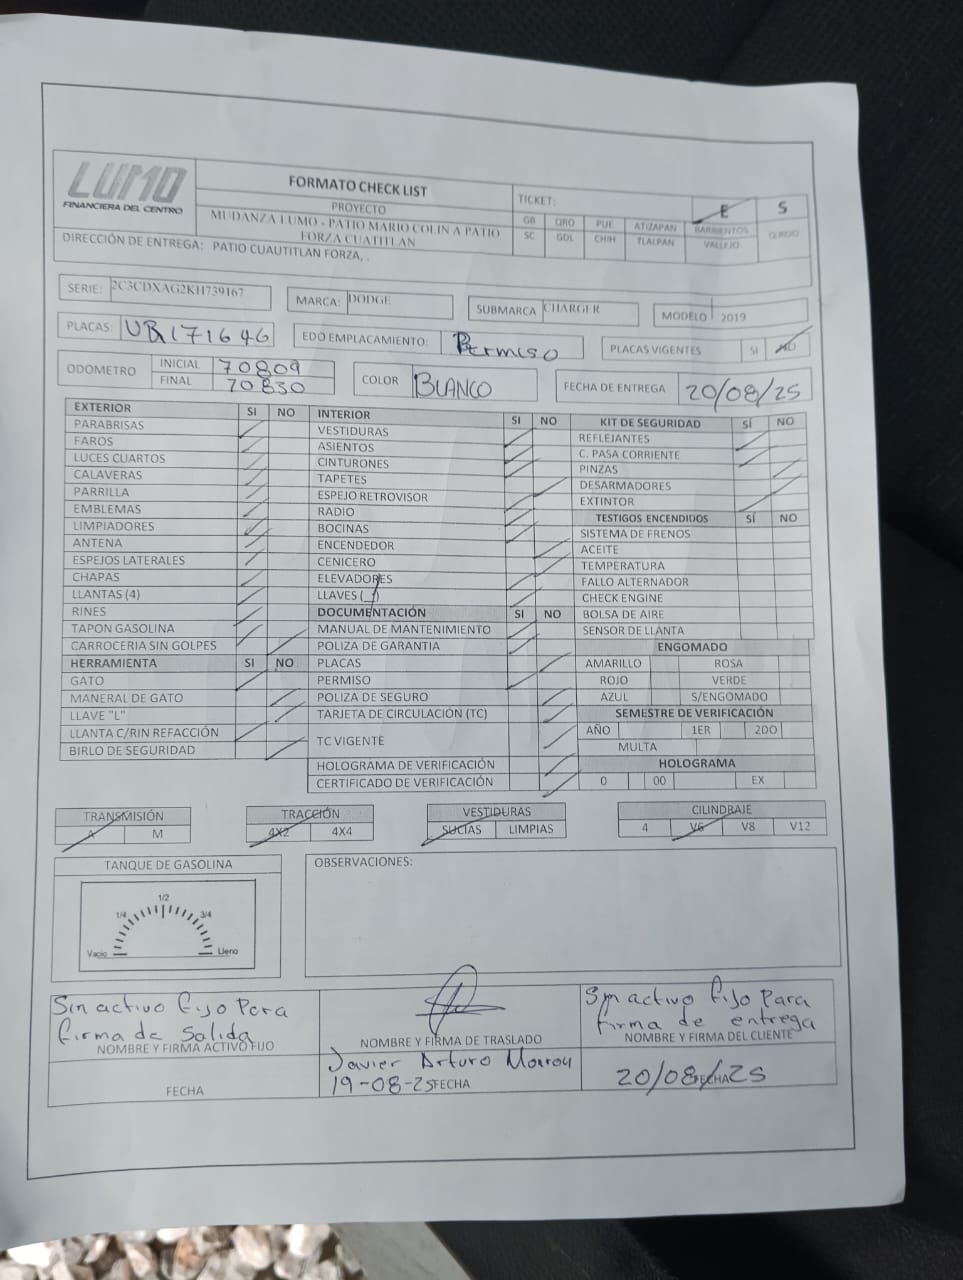 LUMO
FINANCIERA DEL CENTRO
FORMATO CHECK LIST
PROYECTO
MUDANZA LUMO - PATIO MARIO COLIN A PATIO
FORZA CUATITLAN
TICKET:
E S
GB QRO PUE ATIZAPAN BARRIENTOS
SC GDL CHIH TLALPAN VALLEJO
DIRECCIÓN DE ENTREGA: PATIO CUAUTITLAN FORZA, .
SERIE: 2C3CDXAG2KH739167
MARCA: DODGE
SUBMARCA CHARGER
MODELO 2019
PLACAS: UR171646
EDO EMPLACAMIENTO: Permiso
PLACAS VIGENTES SI NO
ODOMETRO INICIAL 70809
FINAL 70830
COLOR BLANCO
FECHA DE ENTREGA 20/08/25
EXTERIOR SI NO
PARABRISAS
FAROS
LUCES CUARTOS
CALAVERAS
PARRILLA
EMBLEMAS
LIMPIADORES
ANTENA
ESPEJOS LATERALES
CHAPAS
LLANTAS (4)
RINES
TAPON GASOLINA
CARROCERIA SIN GOLPES
HERRAMIENTA SI NO
GATO
MANERAL DE GATO
LLAVE "L"
LLANTA C/RIN REFACCIÓN
BIRLO DE SEGURIDAD
INTERIOR SI NO
VESTIDURAS
ASIENTOS
CINTURONES
TAPETES
ESPEJO RETROVISOR
RADIO
BOCINAS
ENCENDEDOR
CENICERO
ELEVADORES
LLAVES (1)
DOCUMENTACIÓN SI NO
MANUAL DE MANTENIMIENTO
POLIZA DE GARANTIA
PLACAS
PERMISO
POLIZA DE SEGURO
TARJETA DE CIRCULACIÓN (TC)
TC VIGENTE
HOLOGRAMA DE VERIFICACIÓN
CERTIFICADO DE VERIFICACIÓN
KIT DE SEGURIDAD SÍ NO
REFLEJANTES
C. PASA CORRIENTE
PINZAS
DESARMADORES
EXTINTOR
TESTIGOS ENCENDIDOS SÍ NO
SISTEMA DE FRENOS
ACEITE
TEMPERATURA
FALLO ALTERNADOR
CHECK ENGINE
BOLSA DE AIRE
SENSOR DE LLANTA
ENGOMADO
AMARILLO ROSA
ROJO VERDE
AZUL S/ENGOMADO
SEMESTRE DE VERIFICACIÓN
AÑO 1ER 2DO
MULTA
HOLOGRAMA
0 00 EX
TRANSMISIÓN
A M
TRACCIÓN
4X2 4X4
VESTIDURAS
SUCIAS LIMPIAS
CILINDRAJE
4 V6 V8 V12
TANQUE DE GASOLINA
1/2
1/4 3/4
Vacio Lleno
OBSERVACIONES:
Sin activo fijo Para
firma de Salida
NOMBRE Y FIRMA ACTIVO FIJO
FECHA
NOMBRE Y FIRMA DE TRASLADO
Javier Arturo Monroy
19-08-25 FECHA
Sin activo fijo Para
firma de entrega
NOMBRE Y FIRMA DEL CLIENTE
20/08/25 FECHA